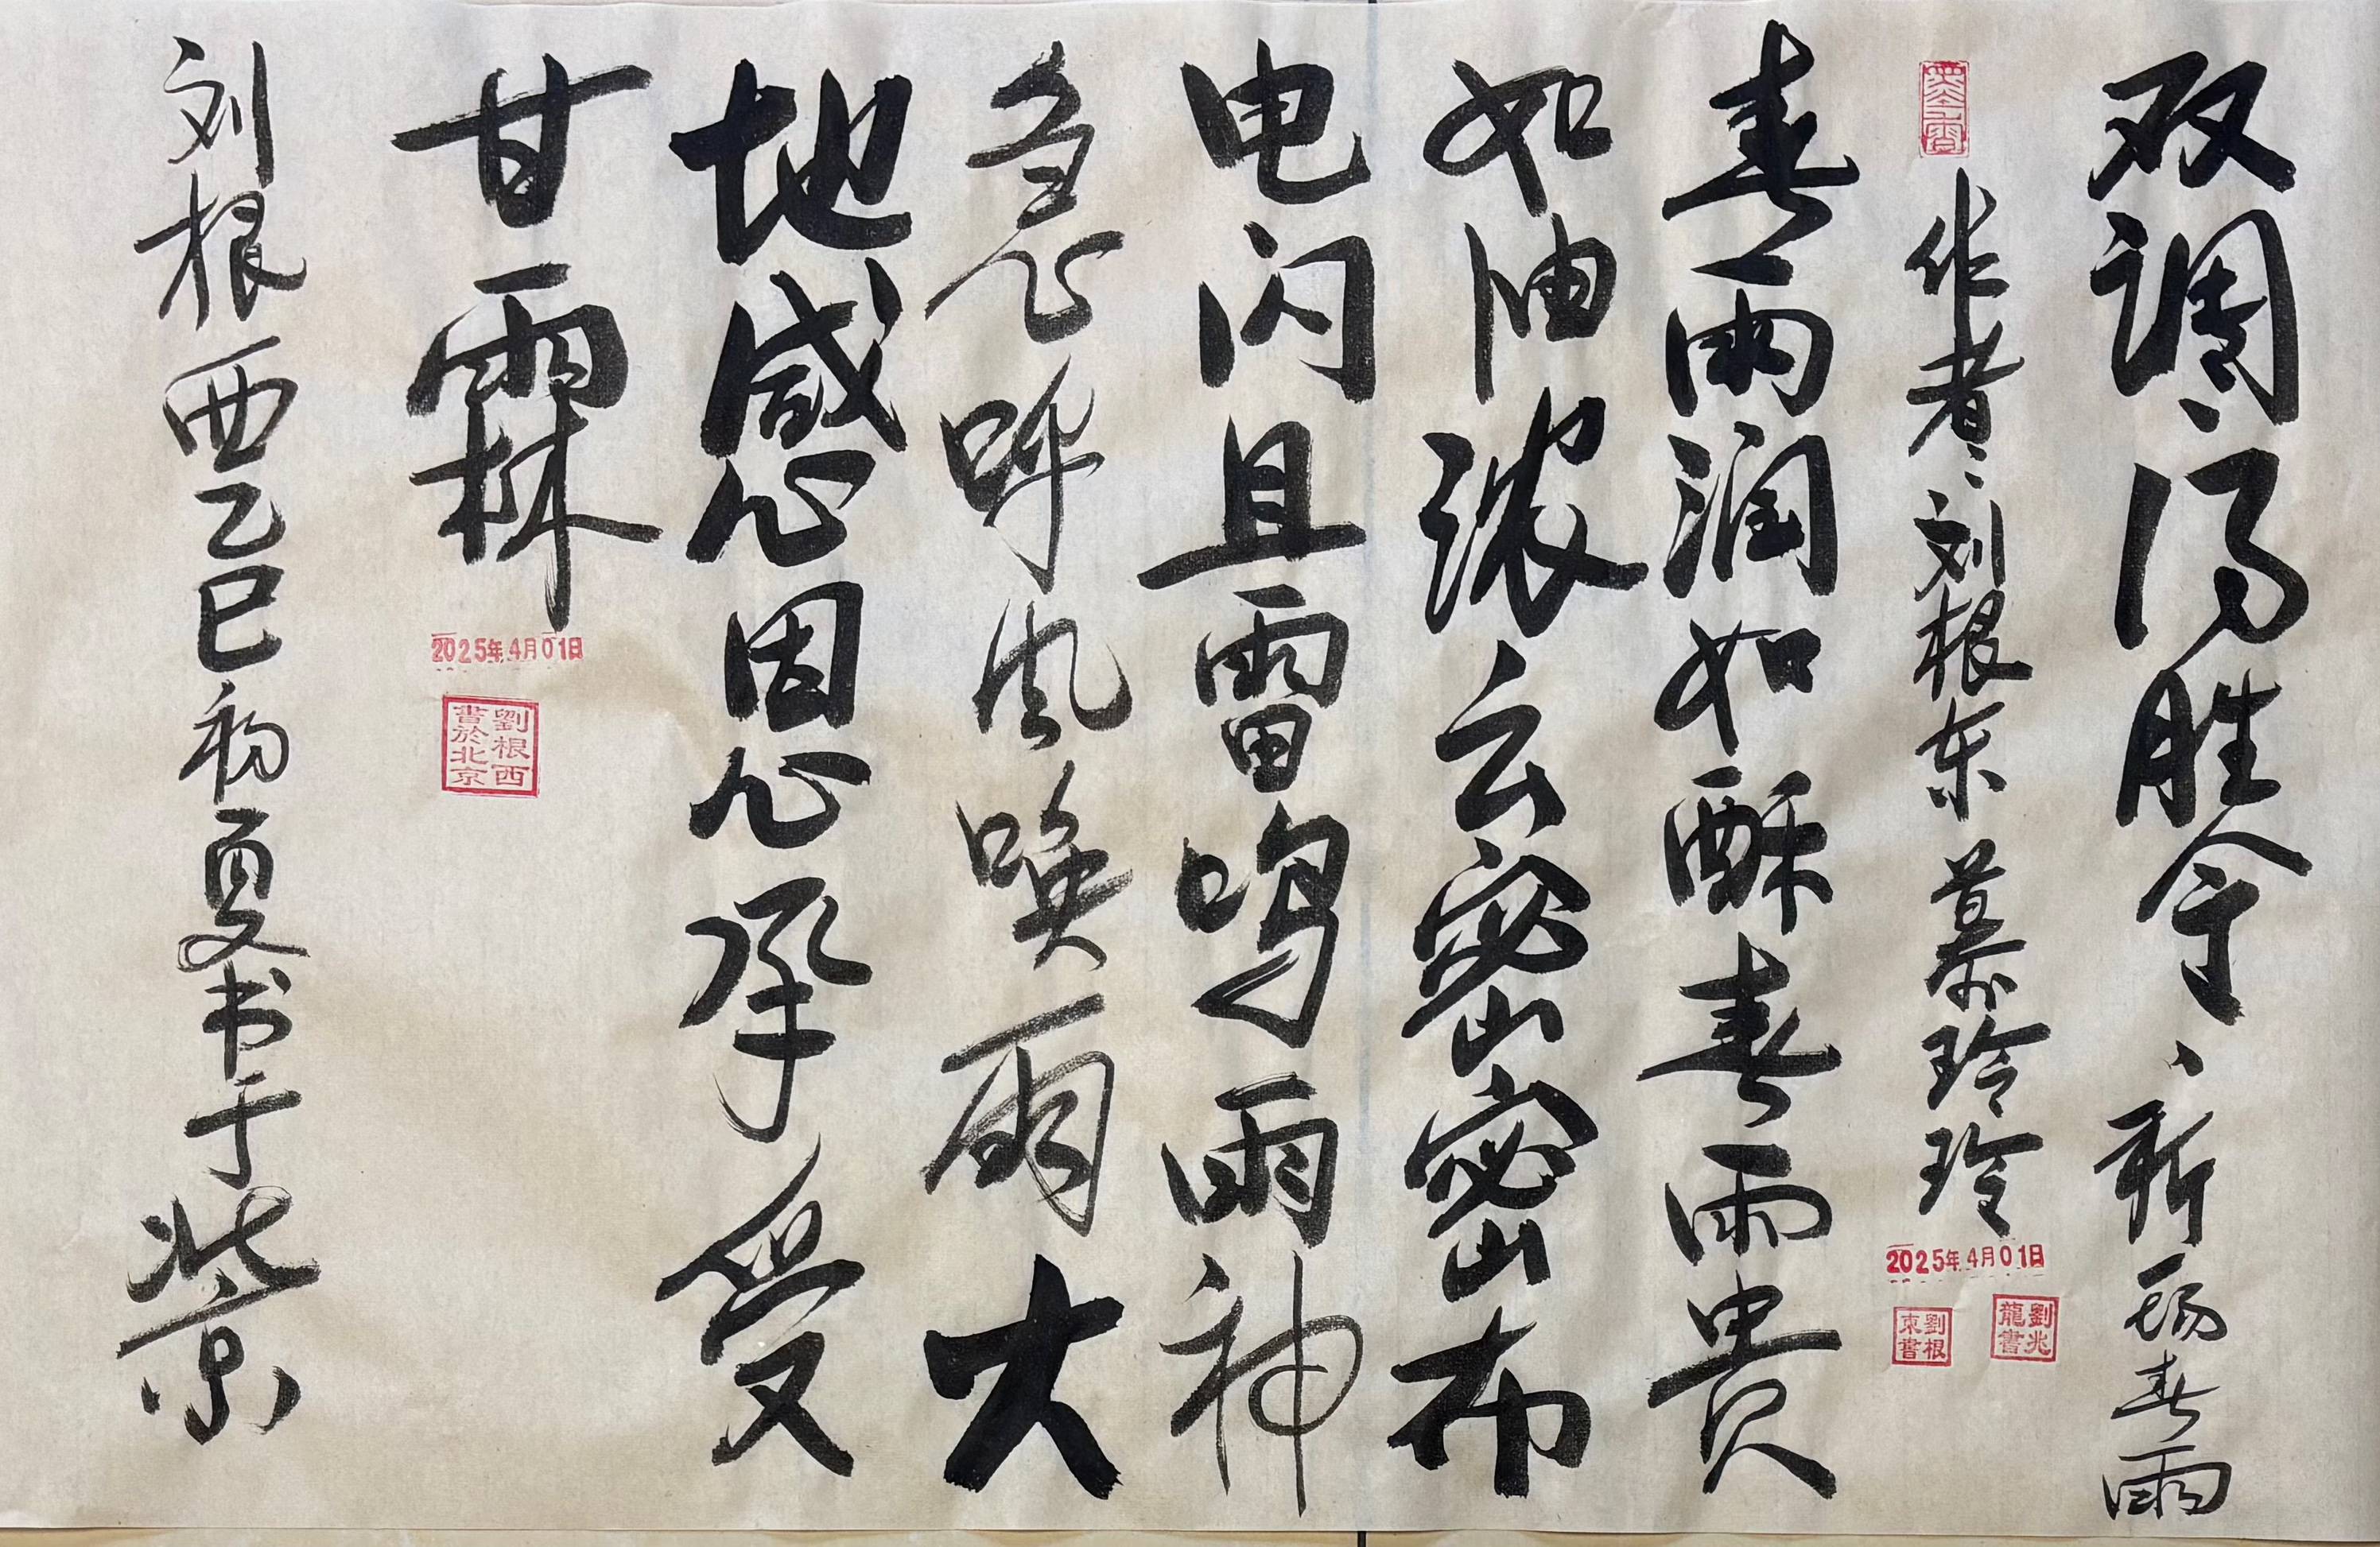 双调、得胜令、新场春雨
作者：刘根东 慕玲玲
2025年4月01日
劉兆龍書
劉根東書
春雨润如酥春雨贵
如油浓云密密布
电闪且雷鸣雨神
急呼风唤雨大
地感恩承受
甘霖
2025年4月01日
劉根西書於北京
刘根西乙巳初夏书于北京